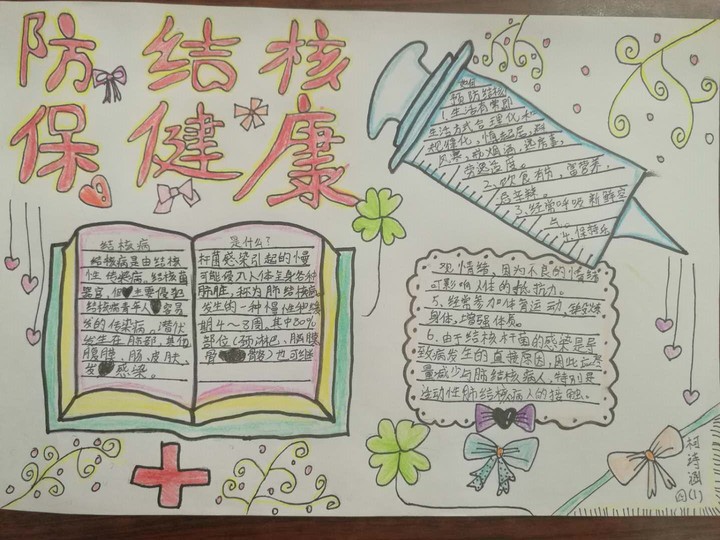 防结核
保健康
结核病
是什么?
结核病是由结核
杆菌感染引起的慢
性传染病。结核菌
可能侵入人体全身各种
器官,但主要侵犯
肺脏,称为肺结核病。
结核病青年人
发生的一种慢性和
发的传染病,潜伏
期4~8周,其中80%
发生在肺部,其他
部位(颈淋巴、脑膜、
腹膜、肠、皮肤、
骨骼)也可继
发感染。
预防结核
1.生活有常即
生活方式合理化和
规律化,慎起居,避
风寒,戒烟酒,远房事,
劳逸适度。
2.饮食有节,富营养,
忌辛辣。
3.经常呼吸新鲜空
气。
4.保持乐
观情绪,因为不良的情绪
可影响人体的抵抗力。
5.经常参加体育运动,锻炼
身体,增强体质。
6.由于结核杆菌的感染是导
致病发生的直接原因,因此应尽
量减少与肺结核病人,特别是
活动性肺结核病人的接触。
柯诗涵
四(1)